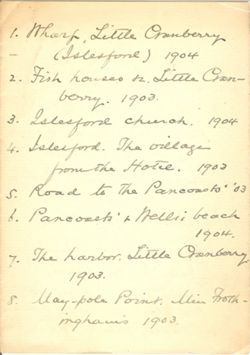 1. Wharf, Little Cranberry
– (Islesford) 1904
2. Fish houses &c. Little Cran-
berry. 1903.
3. Islesford church. 1904
4. Islesford. The village
from the Hotel. 1903
5. Road to the Pancoasts' '03
6. Pancoasts' & Wells beach
1904.
7. The harbor. Little Cranberry
1903.
8. May-pole Point. Miss Froth-
ingham's 1903.